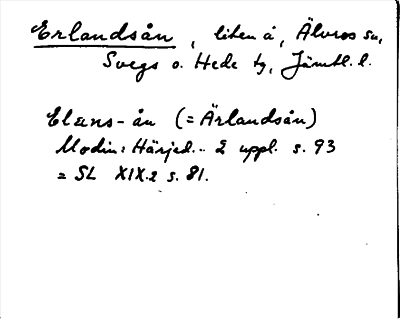 Erlandsån, liten å, Älvros sn,
Svegs o. Hede tg, Jämtl. l.
Elæns-ån (= Ärlandsån)
Modin: Härjed... 2 uppl. s. 93
= SL XIX.2 s. 81.